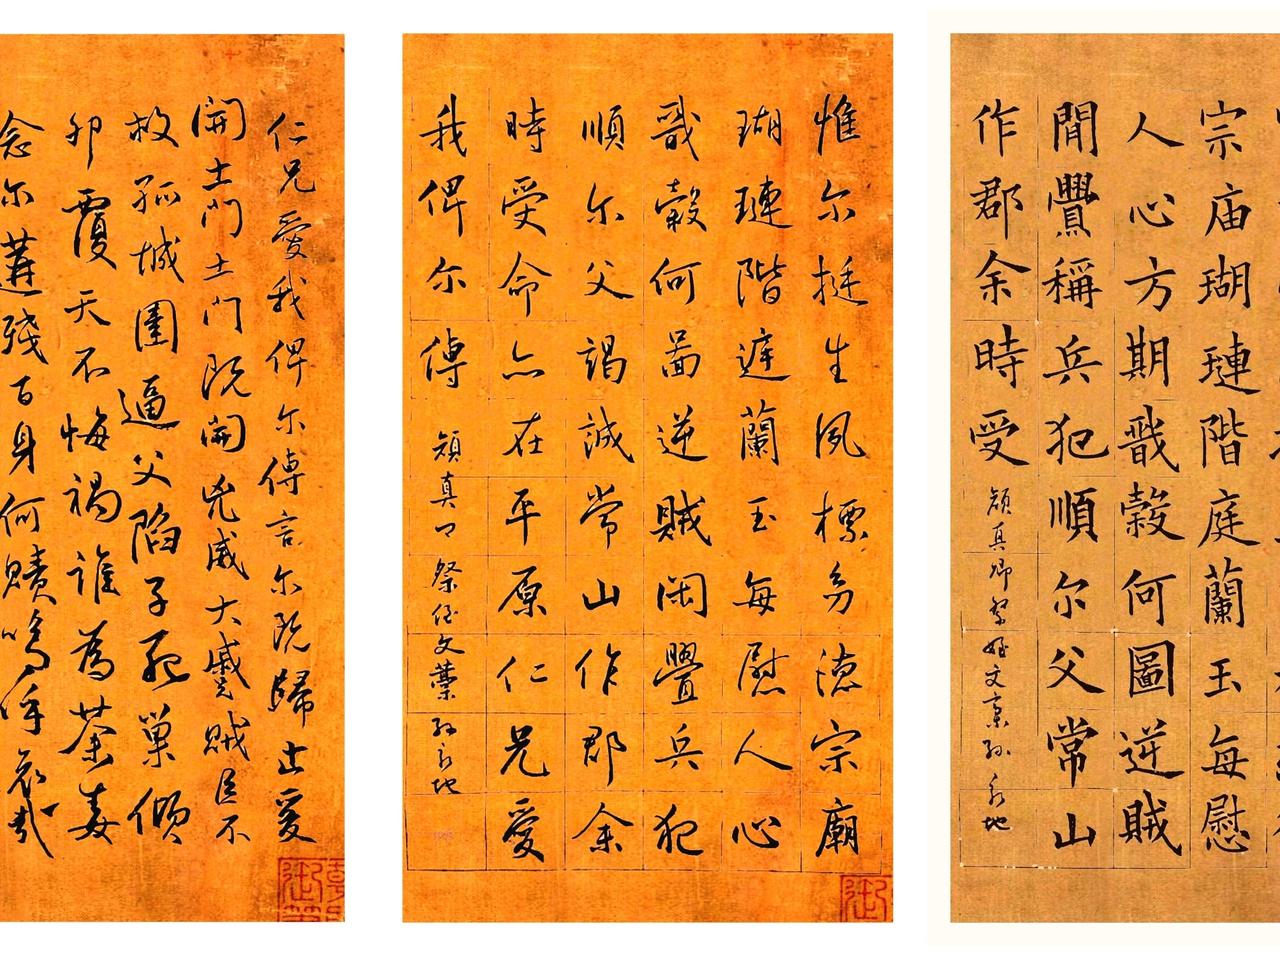 宗庙瑚璉階庭蘭玉每慰
人心方期戩穀何圖逆賊
閒釁稱兵犯順尔父常山
作郡余時受
顔真卿祭姪文稾
惟尔挺生夙標幼德宗廟
瑚璉階庭蘭玉每慰人心
戩穀何啚逆賊閑釁兵犯
順尔父竭誠常山作郡余
時受命亦在平原仁兄愛
我俾尔傳
顔真卿祭侄文藁
仁兄愛我俾尔傳言尔既歸止爰
開土門土门既開兇威大蹙賊臣不
救孤城圍逼父陷子死巢傾
卵覆天不悔禍誰為荼毒
念尔遘殘百身何贖嗚乎哀哉